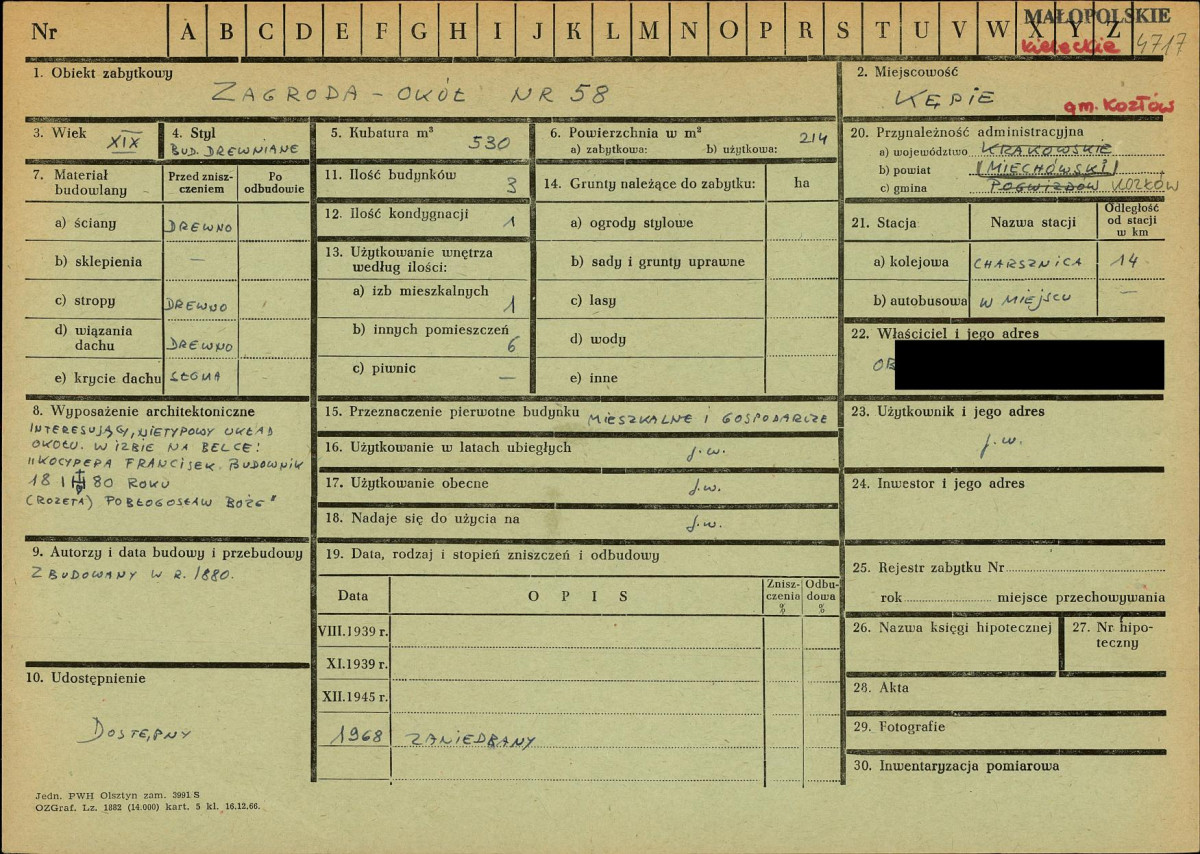 Nr A B C D E F G H I J K L M N O P R S T U V W X Y Z
MAŁOPOLSKIE
kieleckie 4717
1. Obiekt zabytkowy
ZAGRODA - OKÓŁ NR 58
2. Miejscowość
KĘPIE
gm. KOZŁÓW
3. Wiek
XIX
4. Styl
BUD. DREWNIANE
5. Kubatura m³
530
6. Powierzchnia w m²
a) zabytkowa: b) użytkowa: 214
7. Materiał budowlany
Przed zniszczeniem
Po odbudowie
a) ściany DREWNO
b) sklepienia —
c) stropy DREWNO
d) wiązania dachu DREWNO
e) krycie dachu SŁOMA
8. Wyposażenie architektoniczne
INTERESUJĄCY, NIETYPOWY UKŁAD
OKOŁU. W IZBIE NA BELCE:
"KOCYPEPA FRANCISEK. BUDOWNIK
18 80 ROKU
(ROZETA) POBŁOGOSŁAW BOŻE"
9. Autorzy i data budowy i przebudowy
ZBUDOWANY W R. 1880.
10. Udostępnienie
DOSTĘPNY
11. Ilość budynków
3
12. Ilość kondygnacji
1
13. Użytkowanie wnętrza
według ilości:
a) izb mieszkalnych
1
b) innych pomieszczeń
6
c) piwnic —
14. Grunty należące do zabytku: ha
a) ogrody stylowe
b) sady i grunty uprawne
c) lasy
d) wody
e) inne
15. Przeznaczenie pierwotne budynku MIESZKALNE I GOSPODARCZE
16. Użytkowanie w latach ubiegłych j.w.
17. Użytkowanie obecne j.w.
18. Nadaje się do użycia na j.w.
19. Data, rodzaj i stopień zniszczeń i odbudowy
Data O P I S Zniszczenia % Odbudowa %
VIII.1939 r.
XI.1939 r.
XII.1945 r.
1968 ZANIEDBANY
20. Przynależność administracyjna
a) województwo KRAKOWSKIE
b) powiat (MIECHOWSKI)
c) gmina POGWIZDÓW KOZŁÓW
21. Stacja Nazwa stacji Odległość od stacji w km
a) kolejowa CHARSZNICA 14
b) autobusowa W MIEJSCU —
22. Właściciel i jego adres
OB
23. Użytkownik i jego adres
j.w.
24. Inwestor i jego adres
25. Rejestr zabytku Nr
rok miejsce przechowywania
26. Nazwa księgi hipotecznej
27. Nr hipoteczny
28. Akta
29. Fotografie
30. Inwentaryzacja pomiarowa
Jedn. PWH Olsztyn zam. 3991 S
OZGraf. Lz. 1882 (14.000) kart. 5 kl. 16.12.66.